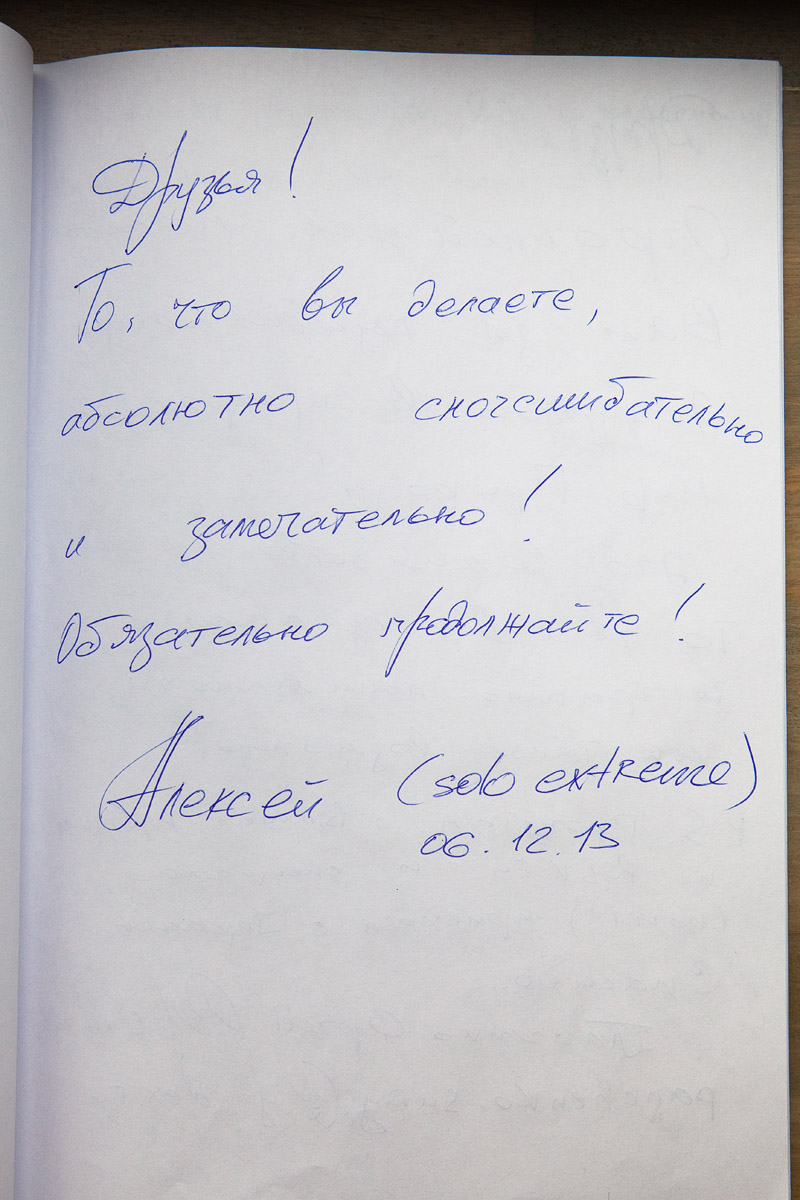 Друзья!
То, что вы делаете,
абсолютно сногсшибательно
и замечательно!
Обязательно продолжайте!
Алексей (solo extreme)
06.12.13